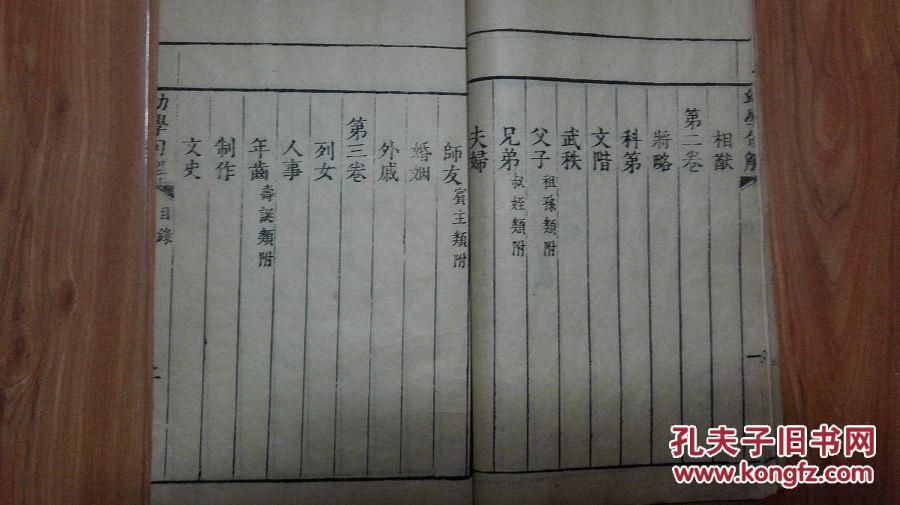 相猷
第二卷
將略
科第
文階
武秩
父子 祖孫類附
兄弟 叔姪類附
夫婦
師友 賓主類附
婚姻
外戚
第三卷
列女
人事
年齒 壽誕類附
制作
文史
目錄
孔夫子旧书网
www.kongfz.com